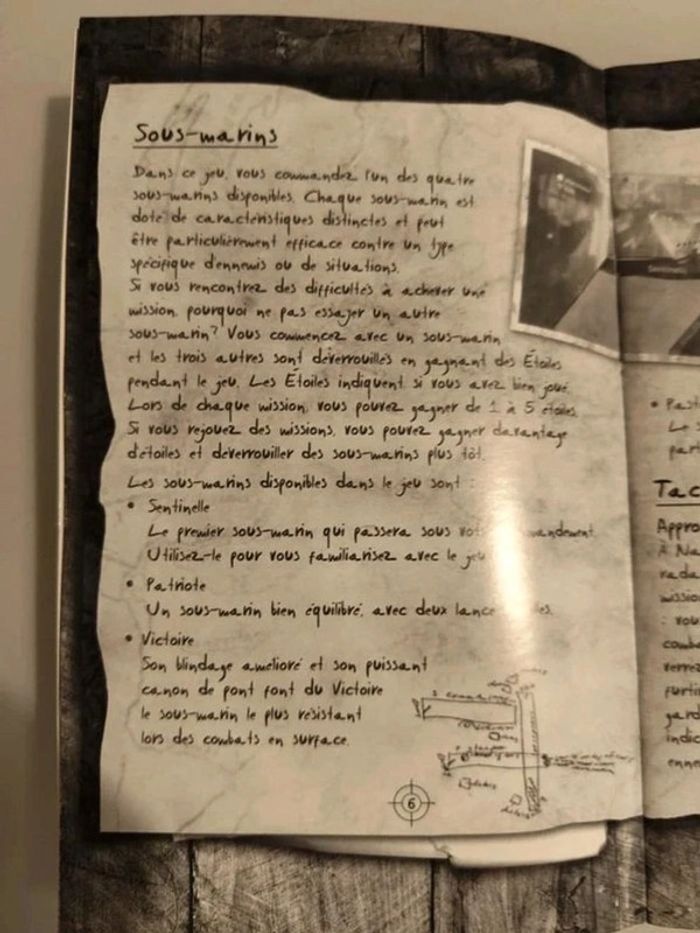 Sous-marins
Dans ce jeu, vous commandez l'un des quatre
sous-marins disponibles. Chaque sous-marin est
doté de caractéristiques distinctes et peut
être particulièrement efficace contre un type
spécifique d'ennemis ou de situations.
Si vous rencontrez des difficultés à achever une
mission, pourquoi ne pas essayer un autre
sous-marin? Vous commencez avec un sous-marin
et les trois autres sont déverrouillés en gagnant des Étoiles
pendant le jeu. Les Étoiles indiquent si vous avez bien joué.
Lors de chaque mission, vous pouvez gagner de 1 à 5 étoiles.
Si vous rejouez des missions, vous pouvez gagner davantage
d'étoiles et déverrouiller des sous-marins plus tôt.
Les sous-marins disponibles dans le jeu sont :
• Sentinelle
Le premier sous-marin qui passera sous
Utilisez-le pour vous familiarisez avec le jeu
• Patriote
Un sous-marin bien équilibré, avec deux
• Victoire
Son blindage amélioré et son puissant
canon de pont font du Victoire
le sous-marin le plus résistant
lors des combats en surface.
6
•
Le
Tac
À